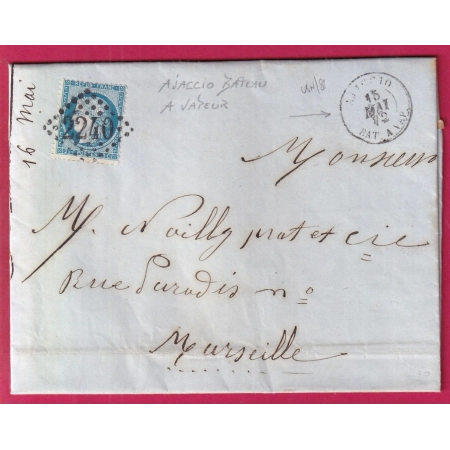 16 Mai
REPUB FRANC
2240
AJACCIO BATEAU
A VAPEUR
AJACCIO
15
MAI
72
BAT. A VAP.
Monsieur
M. Noilly prat et cie
Rue Paradis no
Marseille